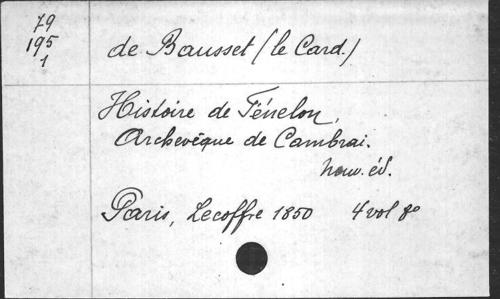 79
195
1
de Bausset (le Card.)
Histoire de Fénelon,
Archevêque de Cambrai.
nouv. éd.
Paris, Lecoffre 1850 4 vol 8º